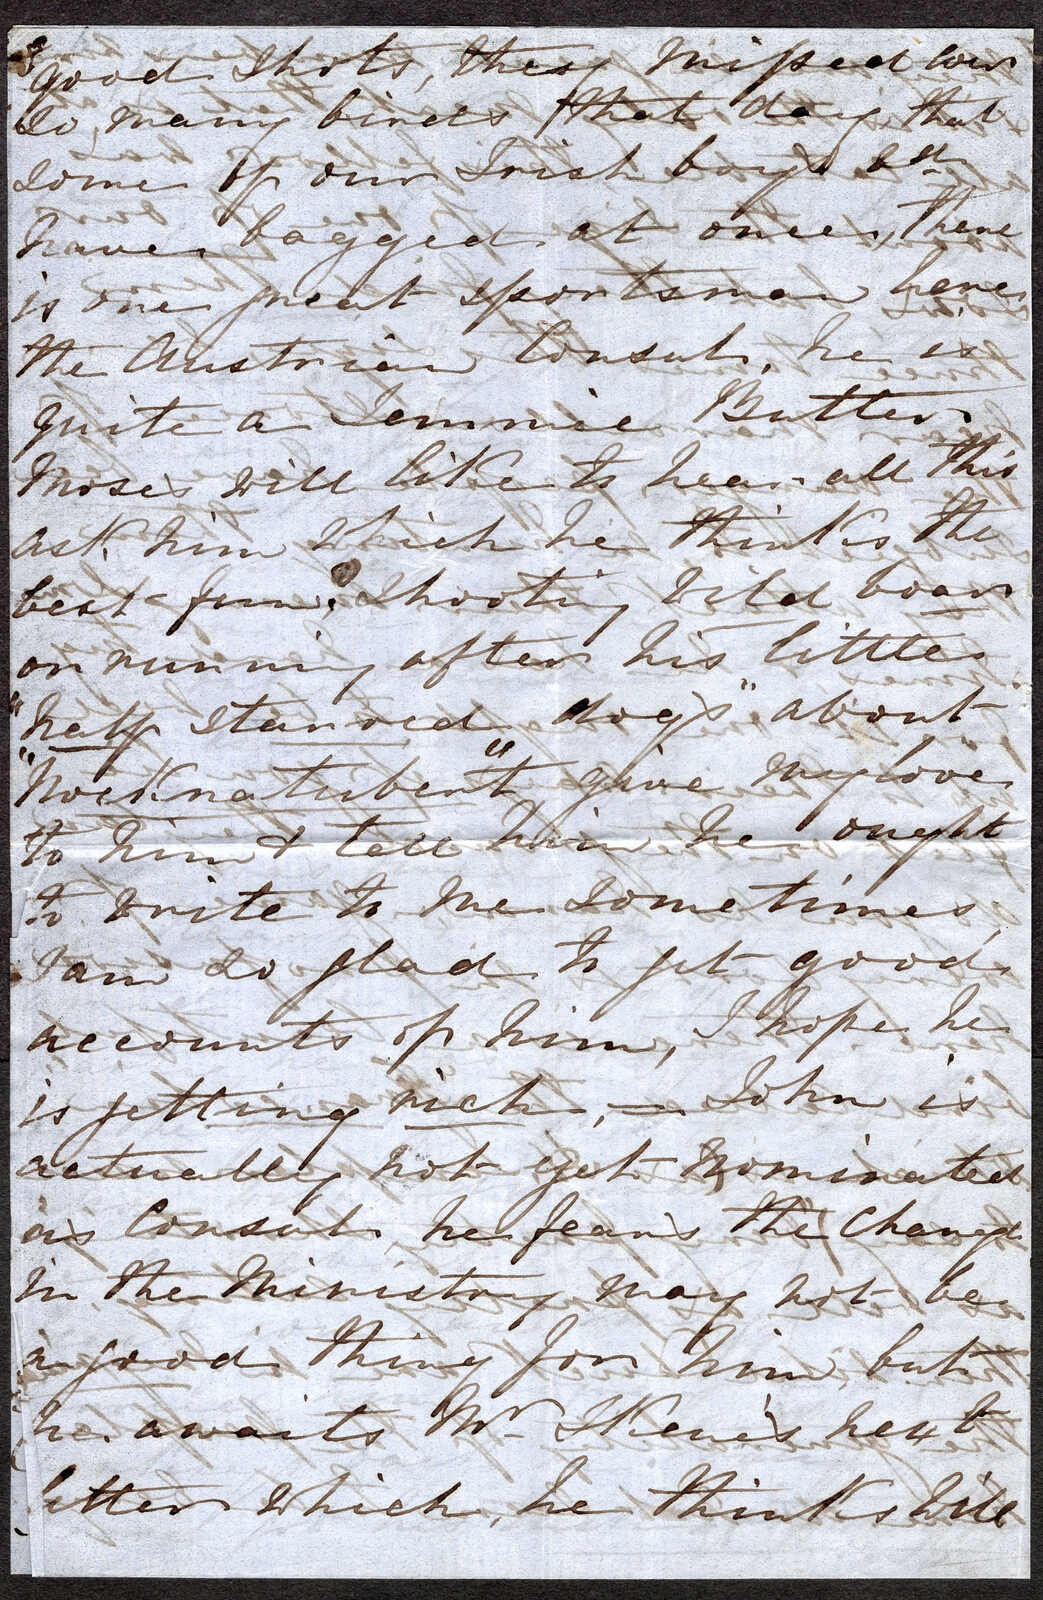 good shots, they missed
so many birds that day that
some of our Irish boys wd
have bagged at once, there
is one great sportsman here
the Austrian Consul, he is
quite a Jemmie Butler
Moses will like to hear all this
ask him which he thinks the
best fun, shooting wild boar
or running after his little
"half starved dogs" about
"Nocknatubent" give my love
to him & tell him he ought
to write to me sometimes,
I am so glad to get good
accounts of him, I hope he
is getting rich, — John is
actually not yet nominated
as Consul, he fears the change
in the Ministry may not be
a good thing for him, but
he awaits Mr Skene's next
letter which, he thinks will